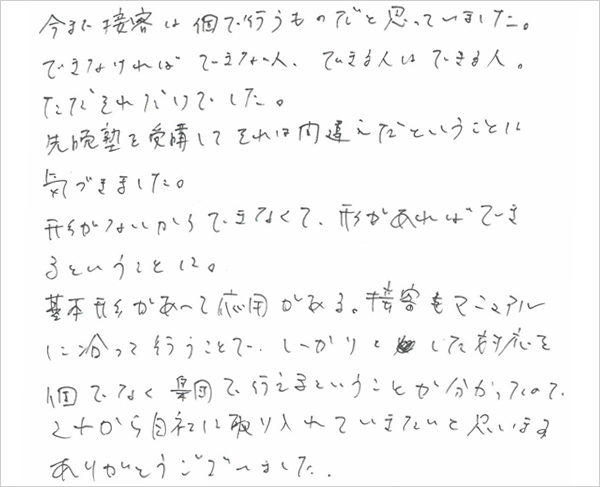 今まで接客は個で行うものだと思っていました。
できなければできない人、できる人はできる人。
ただそれだけでした。
先晩塾を受講してそれは間違えだということに
気づきました。
形がないからできなくて、形があればでき
るということに。
基本形があって応用がある。接客もマニュアル
に沿って行うことで、しっかりとした対応を
個でなく集団で行えるということが分かったので、
これから自社に取り入れていきたいと思います
ありがとうございました。